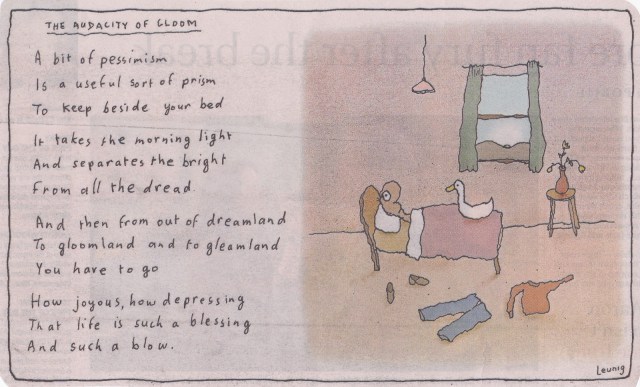 THE AUDACITY OF GLOOM
A bit of pessimism
Is a useful sort of prism
To keep beside your bed
It takes the morning light
And separates the bright
From all the dread.
And then from out of dreamland
To gloomland and to gleamland
You have to go
How joyous, how depressing
That life is such a blessing
And such a blow.
Leunig